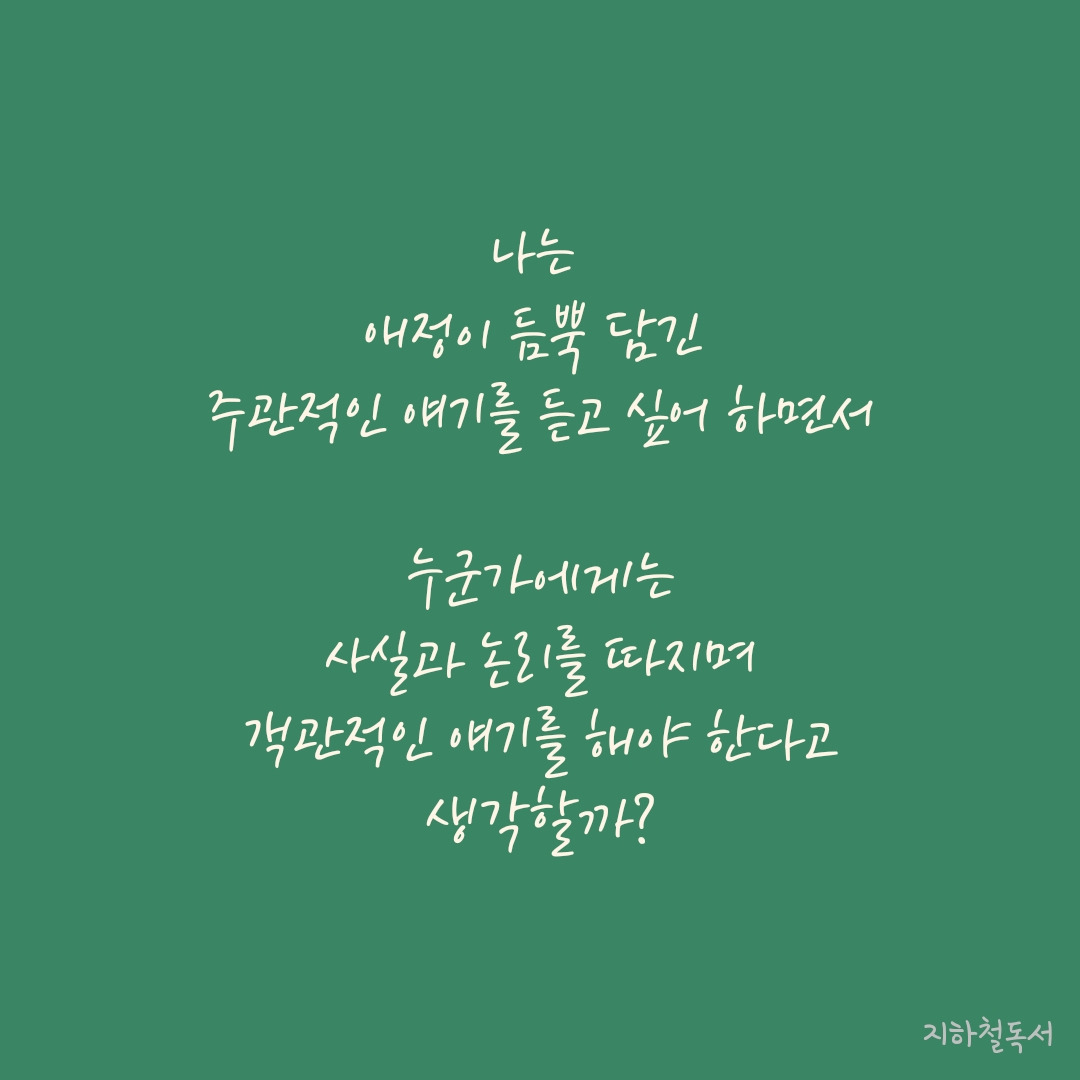 나는
애정이 듬뿍 담긴
주관적인 얘기를 듣고 싶어 하면서
누군가에게는
사실과 논리를 따지며
객관적인 얘기를 해야 한다고
생각할까?
지하철독서